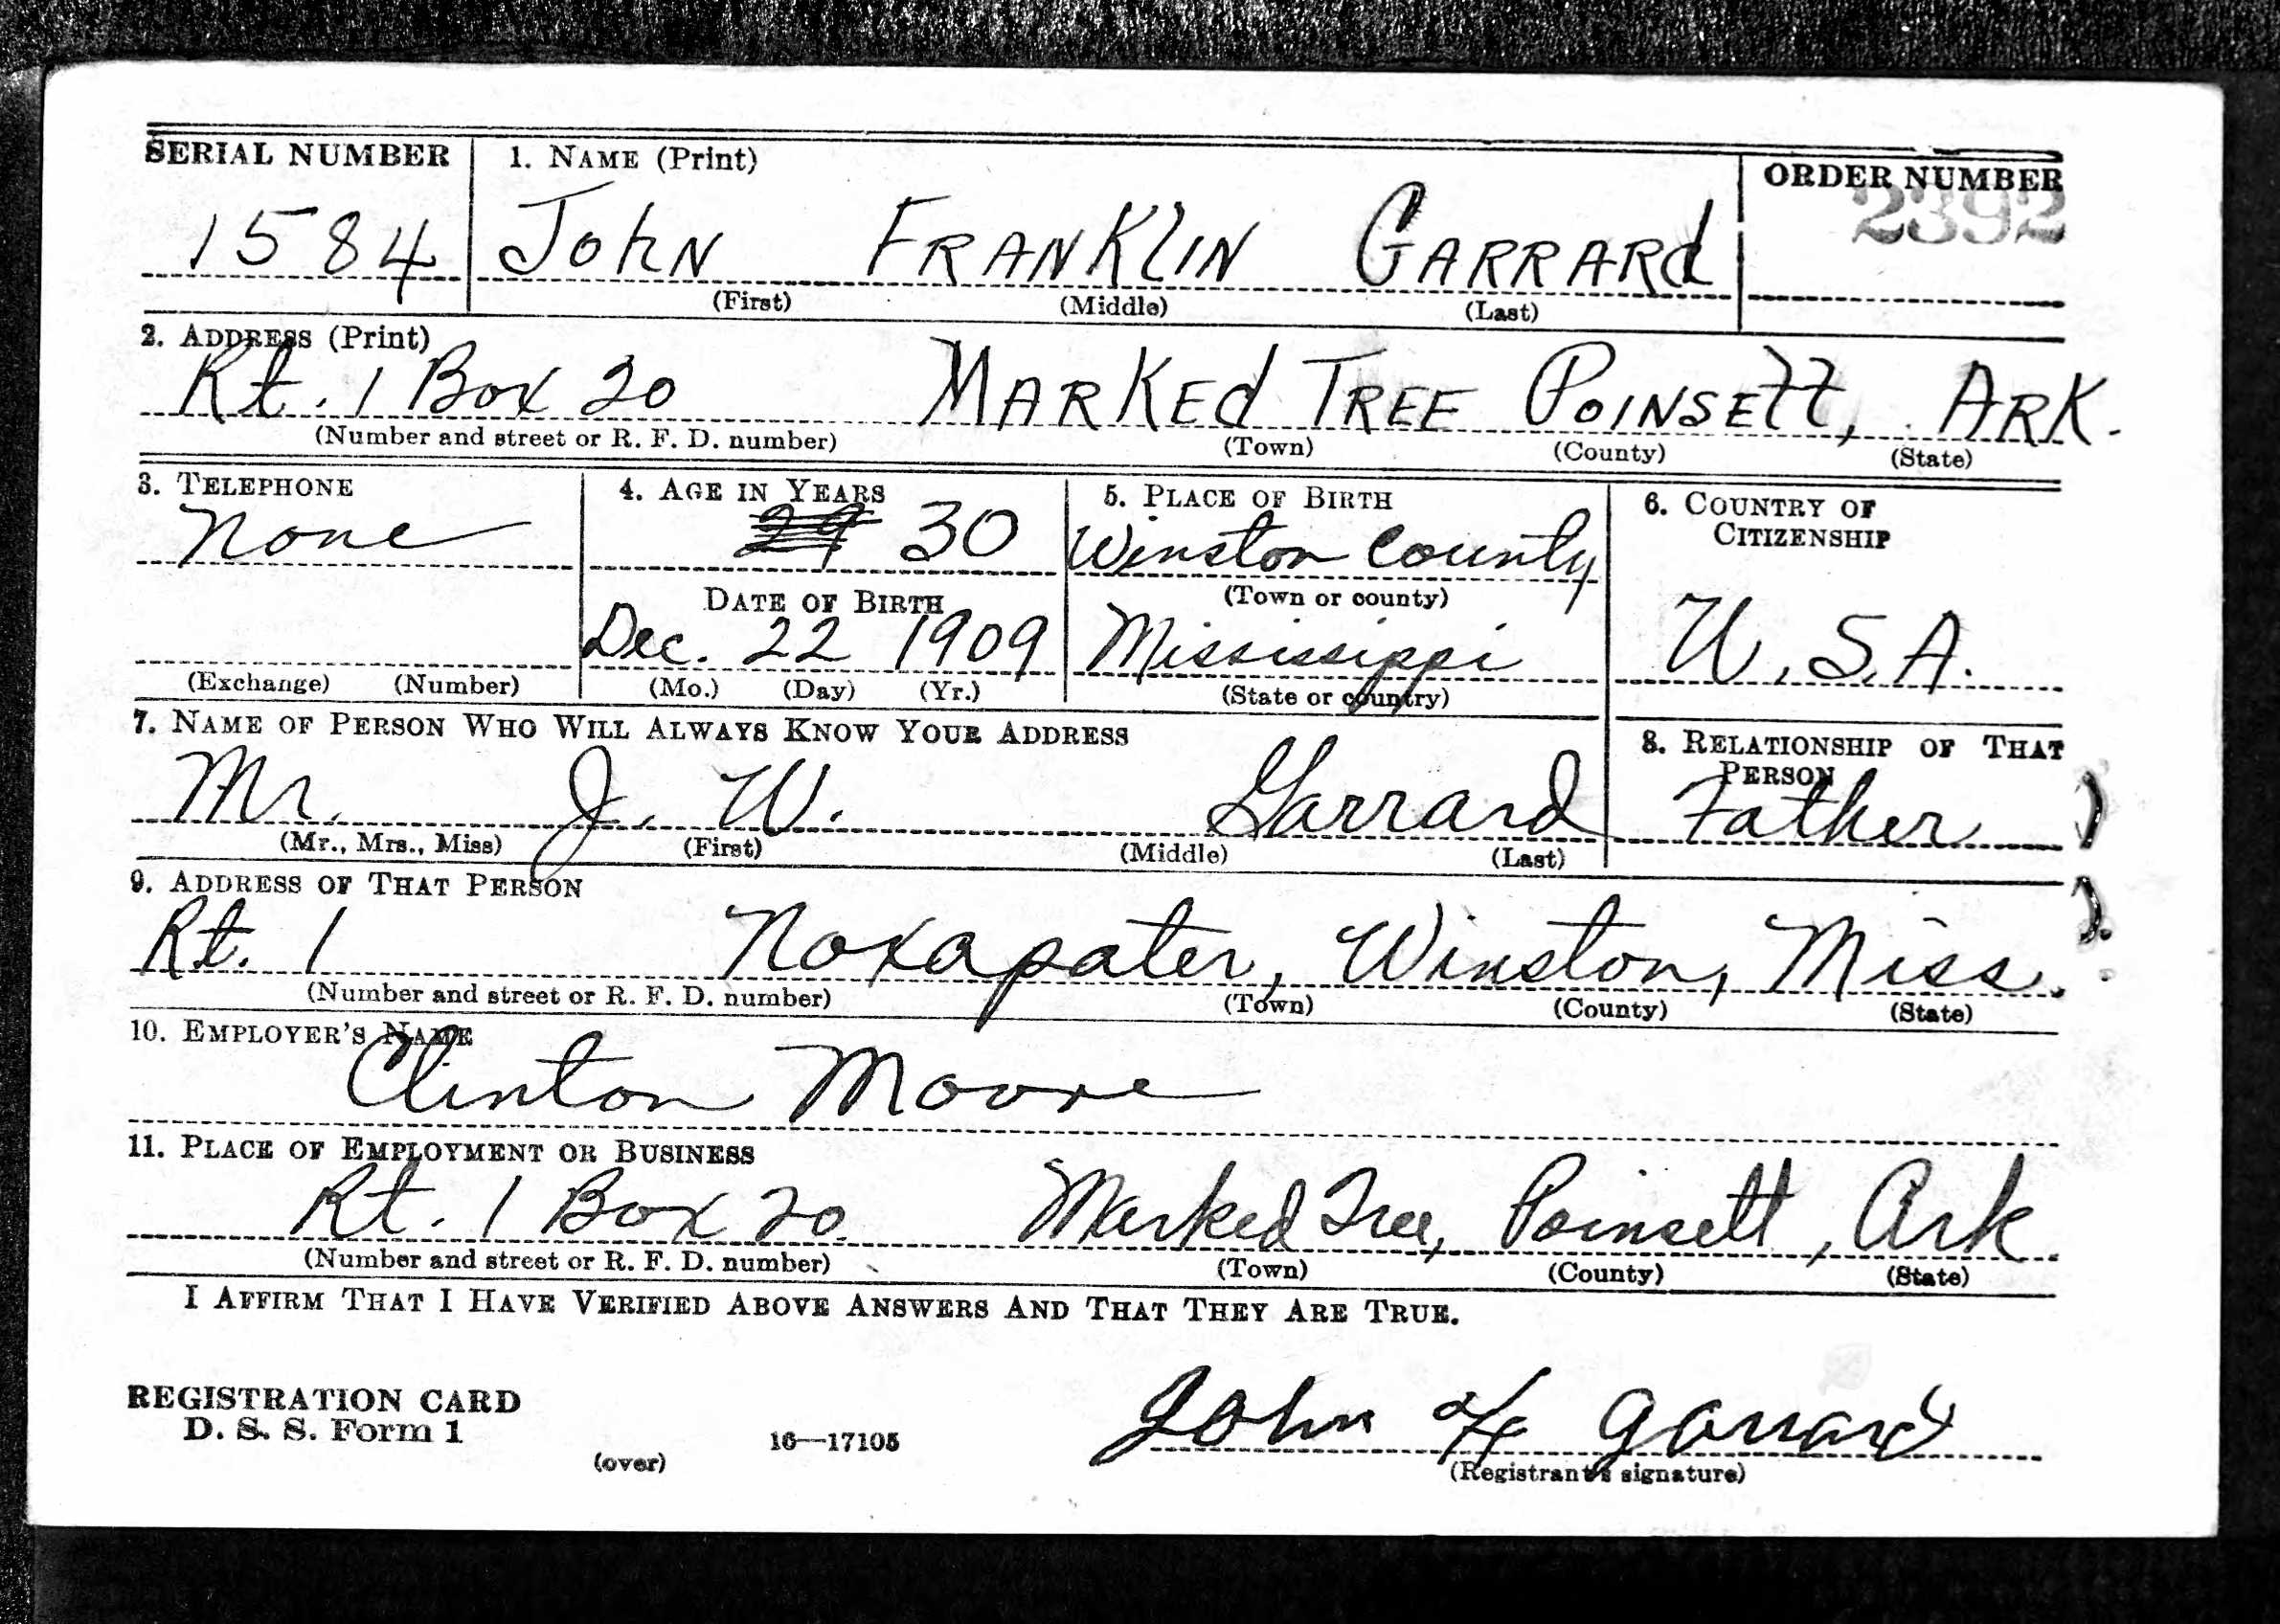 SERIAL NUMBER 1. NAME (Print) ORDER NUMBER
1584 John FRANKLIN GARRARd 2392
(First) (Middle) (Last)
2. ADDRESS (Print)
Rt. 1 Box 20 MARKEd TREE POINSETT, ARK.
(Number and street or R. F. D. number) (Town) (County) (State)
3. TELEPHONE 4. AGE IN YEARS 5. PLACE OF BIRTH 6. COUNTRY OF
CITIZENSHIP
None 29 30 Winston County
DATE OF BIRTH (Town or county)
Dec. 22 1909 Mississippi U.S.A.
(Exchange) (Number) (Mo.) (Day) (Yr.) (State or country)
7. NAME OF PERSON WHO WILL ALWAYS KNOW YOUR ADDRESS 8. RELATIONSHIP OF THAT
PERSON
Mr. J. W. Garrard Father
(Mr., Mrs., Miss) (First) (Middle) (Last)
9. ADDRESS OF THAT PERSON
Rt. 1 Noxapater, Winston, Miss.
(Number and street or R. F. D. number) (Town) (County) (State)
10. EMPLOYER'S NAME
Clinton Moore
11. PLACE OF EMPLOYMENT OR BUSINESS
Rt. 1 Box 20 Marked Tree, Poinsett, Ark.
(Number and street or R. F. D. number) (Town) (County) (State)
I AFFIRM THAT I HAVE VERIFIED ABOVE ANSWERS AND THAT THEY ARE TRUE.
REGISTRATION CARD
D. S. S. Form 1
(over) 16—17105
John F Garrard
(Registrant's signature)